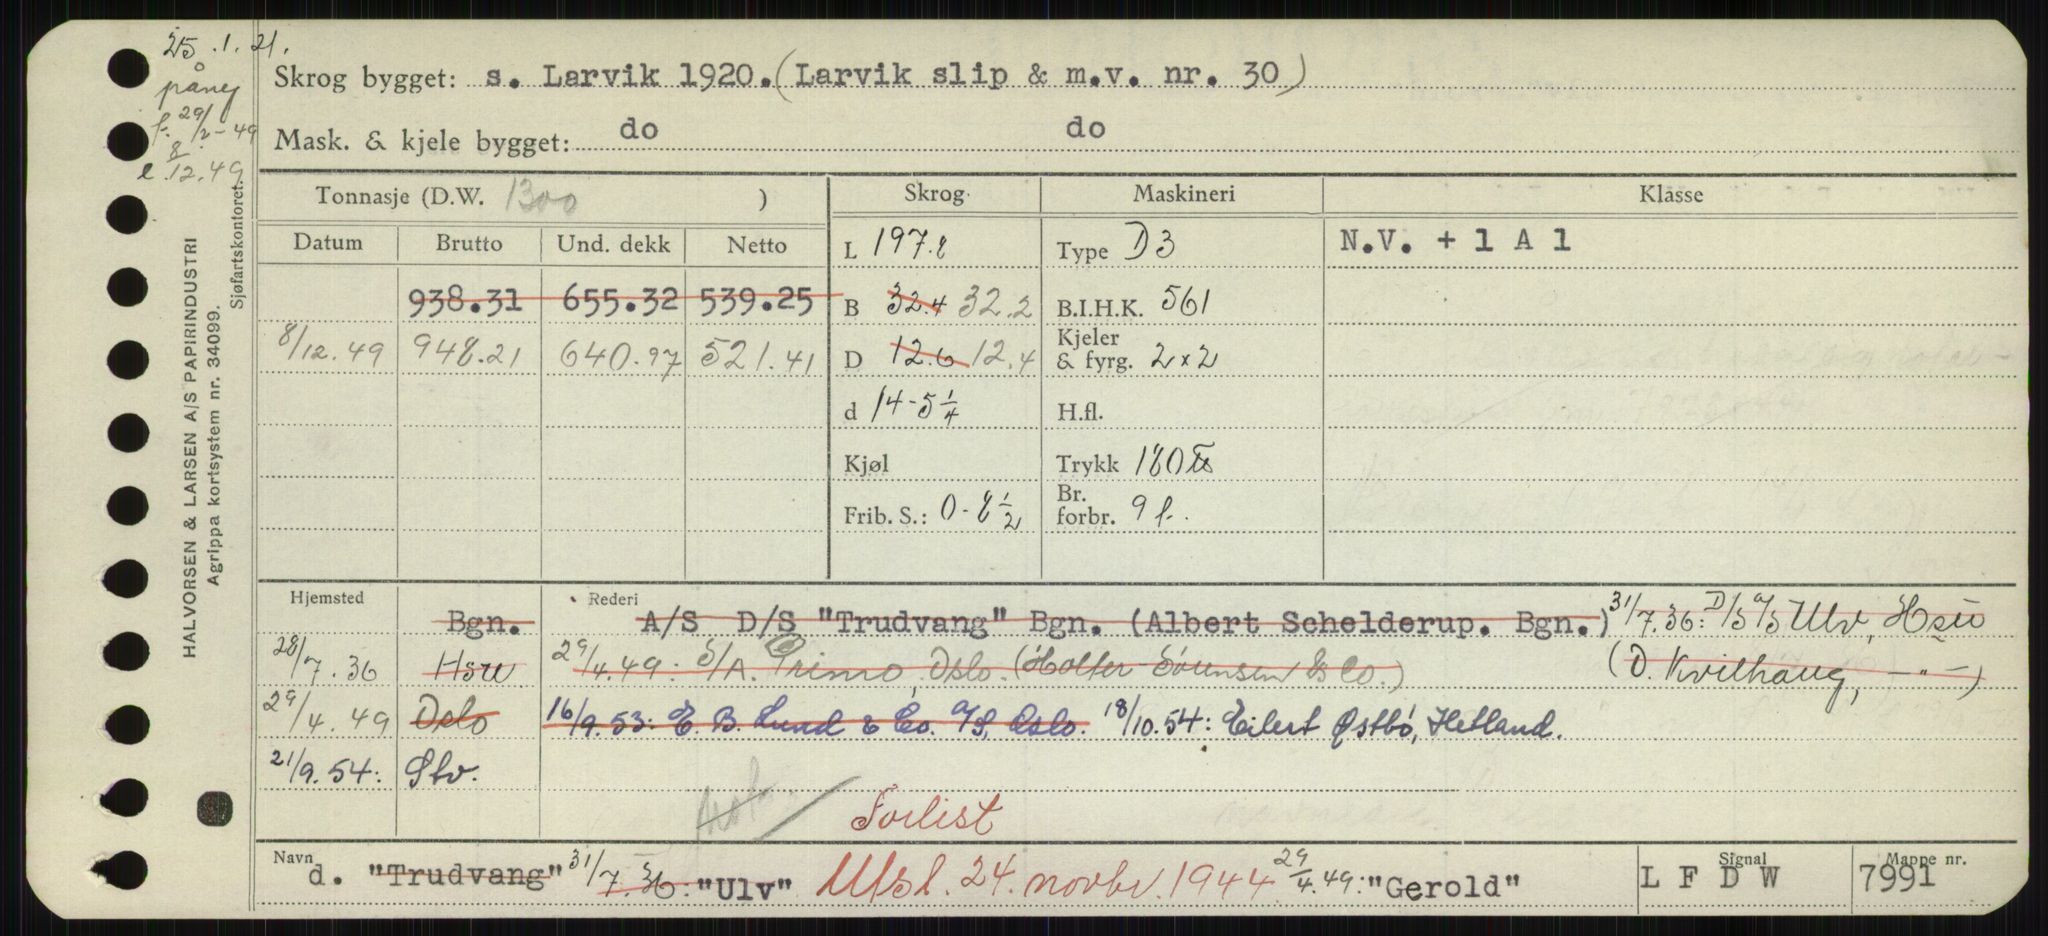 25.1.21.
pånej
f. 29/2-49
e 8/12.49
HALVORSEN & LARSEN A/S PAPIRINDUSTRI
Agrippa kortsystem nr. 34099.
Sjøfartskontoret.
Skrog bygget: s. Larvik 1920. (Larvik slip & m.v. nr. 30)
Mask. & kjele bygget: do do
Tonnasje (D.W. 1300 ) Skrog Maskineri Klasse
Datum Brutto Und. dekk Netto L 197.8 Type D3 N.V. + 1 A 1
938.31 655.32 539.25 B 32.4 32.2 B.I.H.K. 561
8/12.49 948.21 640.97 521.41 D 12.6 12.4 Kjeler & fyrg. 2x2
d 14-5 1/4 H.fl.
Kjøl Trykk 180
Frib. S.: 0-8 1/2 Br. forbr. 9 f.
Hjemsted Rederi
Bgn. A/S D/S "Trudvang" Bgn. (Albert Schelderup. Bgn.) 31/7.36: D/S A/S Ulv, Hsu
28/7.36 Hsu 29/4.49: S/A. Primo, Oslo. (Holter-Sørensen & Co.) (D. Kvilhaug, -"-)
29/4.49 Oslo 16/9.53: E. B. Lund & Co. A/S, Oslo. 18/10.54: Eilert Østbö, Hetland.
21/9.54: Stv.
Forlist
Navn d. "Trudvang" 31/7.36: "Ulv" Utsl. 24. novbr. 1944 29/4.49: "Gerold" Signal L F D W Mappe nr. 7991